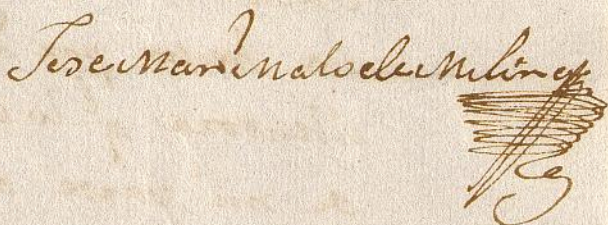 Jose Mari Malo de Molina